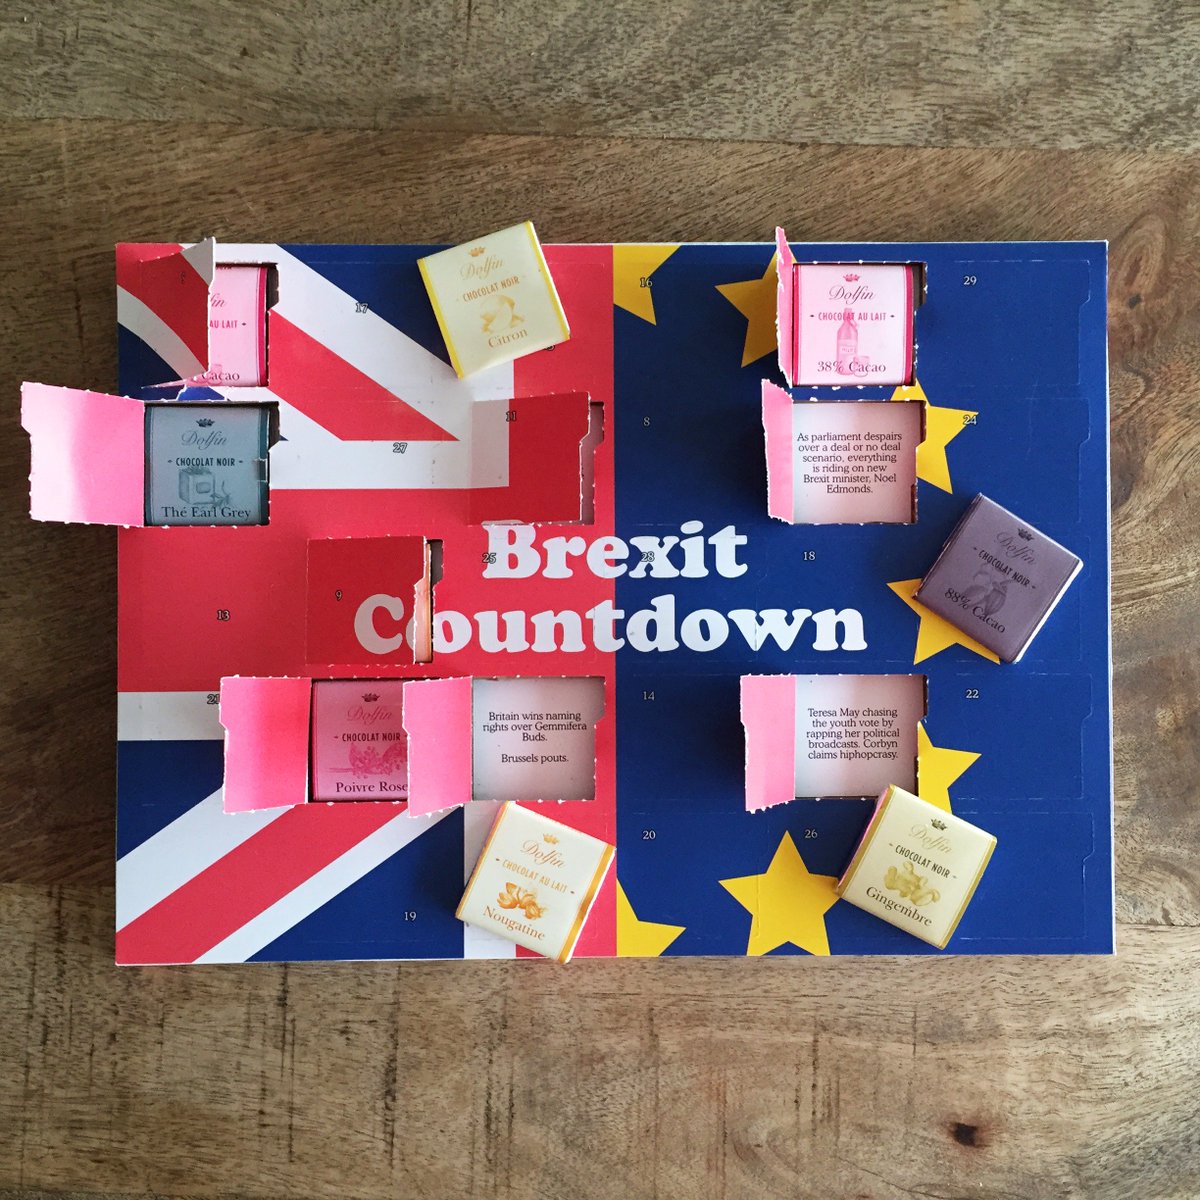 Dolfin
CHOCOLAT NOIR
Citron
16
29
17
AU LAIT
Cacao
Dolfin
- CHOCOLAT AU LAIT -
38% Cacao
11
8
24
27
Dolfin
- CHOCOLAT NOIR -
Thé Earl Grey
As parliament despairs
over a deal or no deal
scenario, everything
is riding on new
Brexit minister, Noel
Edmonds.
Brexit
Countdown
25
28
18
9
13
Dolfin
- CHOCOLAT NOIR -
88% Cacao
21
14
22
Dolfin
- CHOCOLAT NOIR
Poivre Rose
Britain wins naming
rights over Gemmifera
Buds.
Brussels pouts.
Teresa May chasing
the youth vote by
rapping her political
broadcasts. Corbyn
claims hiphopcrasy.
20
26
19
Dolfin
- CHOCOLAT AU LAIT -
Nougatine
Dolfin
- CHOCOLAT NOIR -
Gingembre